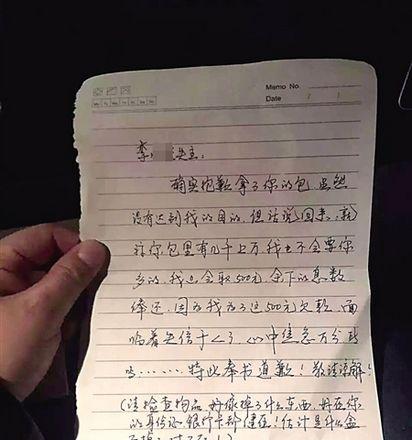 Memo No.
Date / /
Mo Tu We Th Fr Sa Su
李 失主:
确实抱歉拿了你的包,虽然
没有达到我的目的,但话说回来,就
称你包里有几千上万,我也不会要你
多的,我也会取500元,余下的悉数
俸还,因为我为了这500元欠款,面
临着失信十么了,心中焦急万分
呜……特此奉书道歉!敬请谅解!
(请检查物品,好像掉了什么东西,好在你
的身份证、银行卡都健在!估计是什么盒